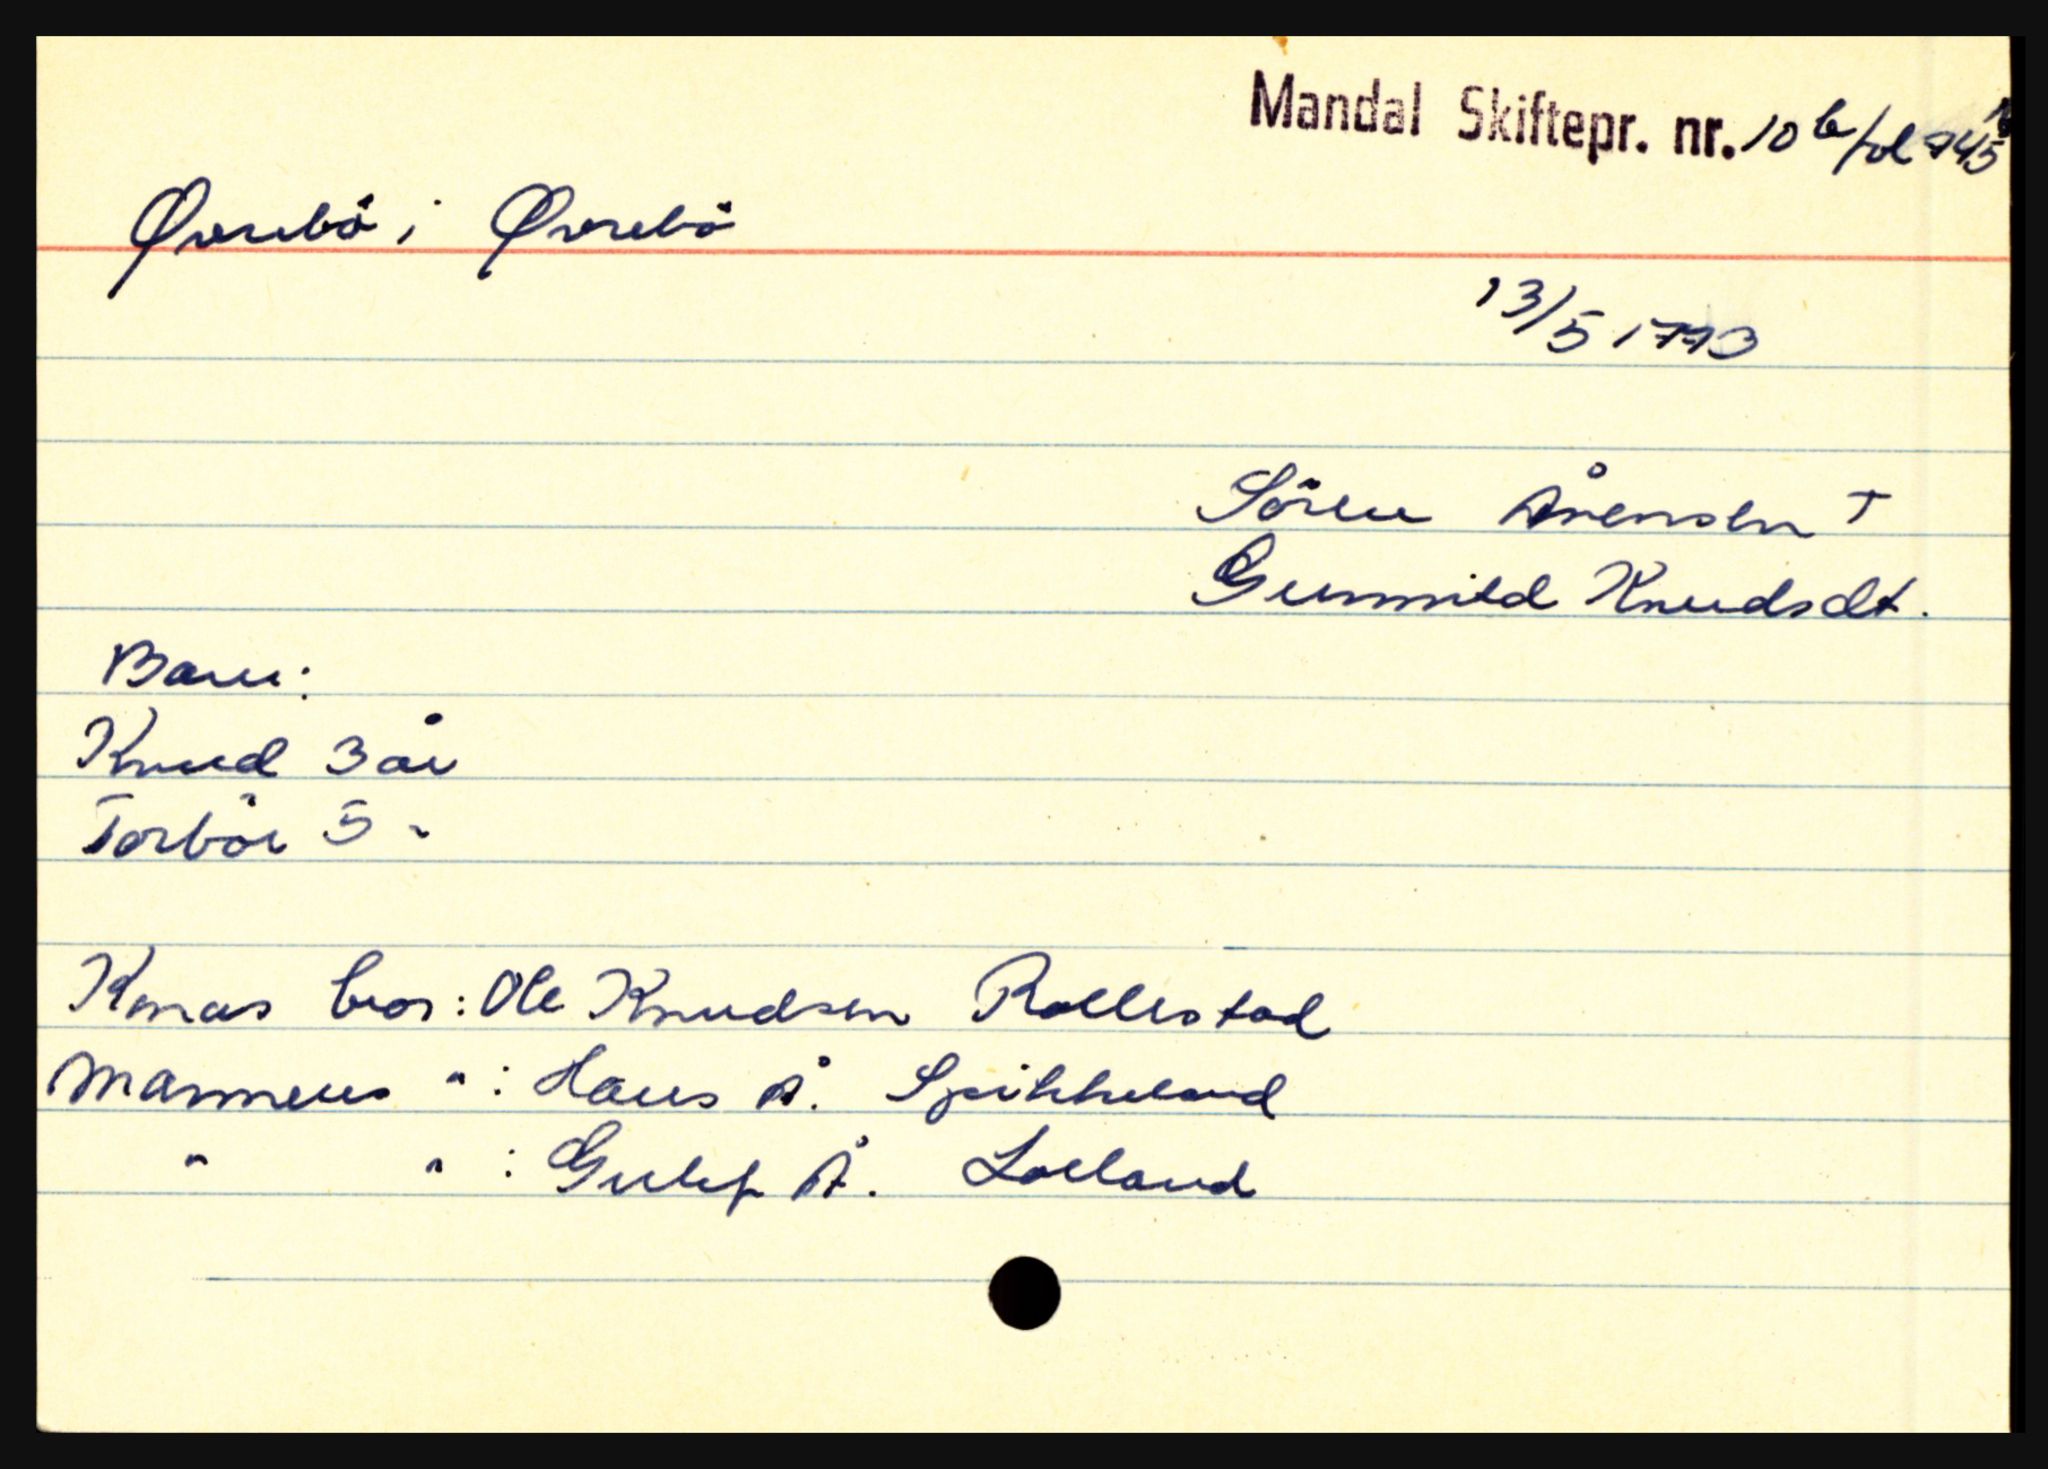 Mandal Skiftepr. nr. 10 b fol 745
Øvrebö i Øvrebö
13/5 1773
Sören Ånensen †
Gunnild Knudsdt.
Barn:
Knud 3 år
Torbör 5 "
Konas bror: Ole Knudsen Rollestad
Mannens " : Hans Å. Spikkeland
" " : Gulef Å. Lolland